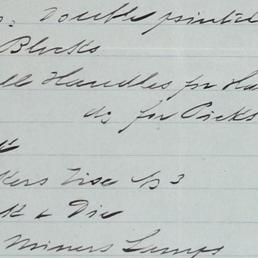 Double pointed
Blocks
Handles for
do for Picks
Vise No 3
& Die
Miners Lamps